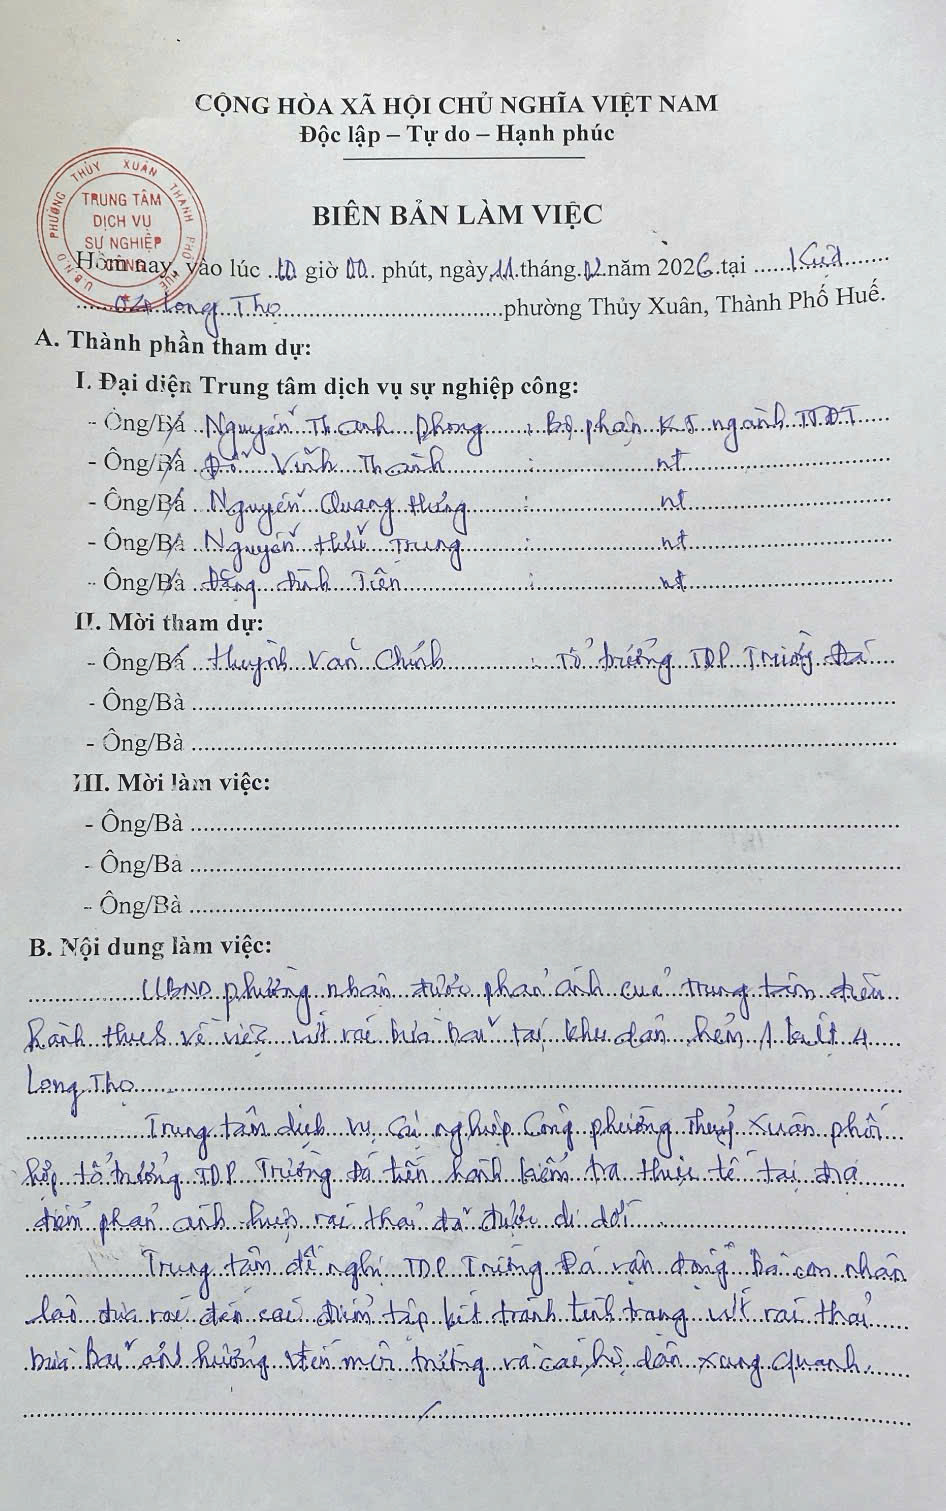 CỘNG HÒA XÃ HỘI CHỦ NGHĨA VIỆT NAM
Độc lập – Tự do – Hạnh phúc
U.B.N.D PHƯỜNG THỦY XUÂN THÀNH PHỐ HUẾ
TRUNG TÂM
DỊCH VỤ
SỰ NGHIỆP
CÔNG
BIÊN BẢN LÀM VIỆC
Hôm nay, vào lúc 10 giờ 00 phút, ngày 11 tháng 02 năm 2026 tại Kiệt
Long Thọ phường Thủy Xuân, Thành Phố Huế.
A. Thành phần tham dự:
I. Đại diện Trung tâm dịch vụ sự nghiệp công:
- Ông/Bà Nguyễn Thanh Phong : Bộ phận KT ngành TTĐT
- Ông/Bà Đỗ Vĩnh Thành : nt
- Ông/Bà Nguyễn Quang Hưng : nt
- Ông/Bà Nguyễn Hữu Trung : nt
- Ông/Bà Đặng Đình Tiên : nt
II. Mời tham dự:
- Ông/Bà Huỳnh Văn Chính : Tổ trưởng TDP Trường Đá
- Ông/Bà
- Ông/Bà
III. Mời làm việc:
- Ông/Bà
- Ông/Bà
- Ông/Bà
B. Nội dung làm việc:
UBND phường nhận được phản ánh của Trung tâm điều
hành thuế về việc vứt rác bừa bãi tại khu dân, hẻm 1 kiệt 4
Long Thọ
Trung tâm dịch vụ sự nghiệp Công phường Thuỷ Xuân phối
hợp tổ trưởng TDP Trường Đá tiến hành kiểm tra thực tế tại địa
điểm phản ánh hiện rác thải đã được di dời
Trung tâm đề nghị TDP Trường Đá vận động bà con nhân
dân đưa rác đến các điểm tập kết tránh tình trạng vứt rác thải
bừa bãi ảnh hưởng đến môi trường và các hộ dân xung quanh.